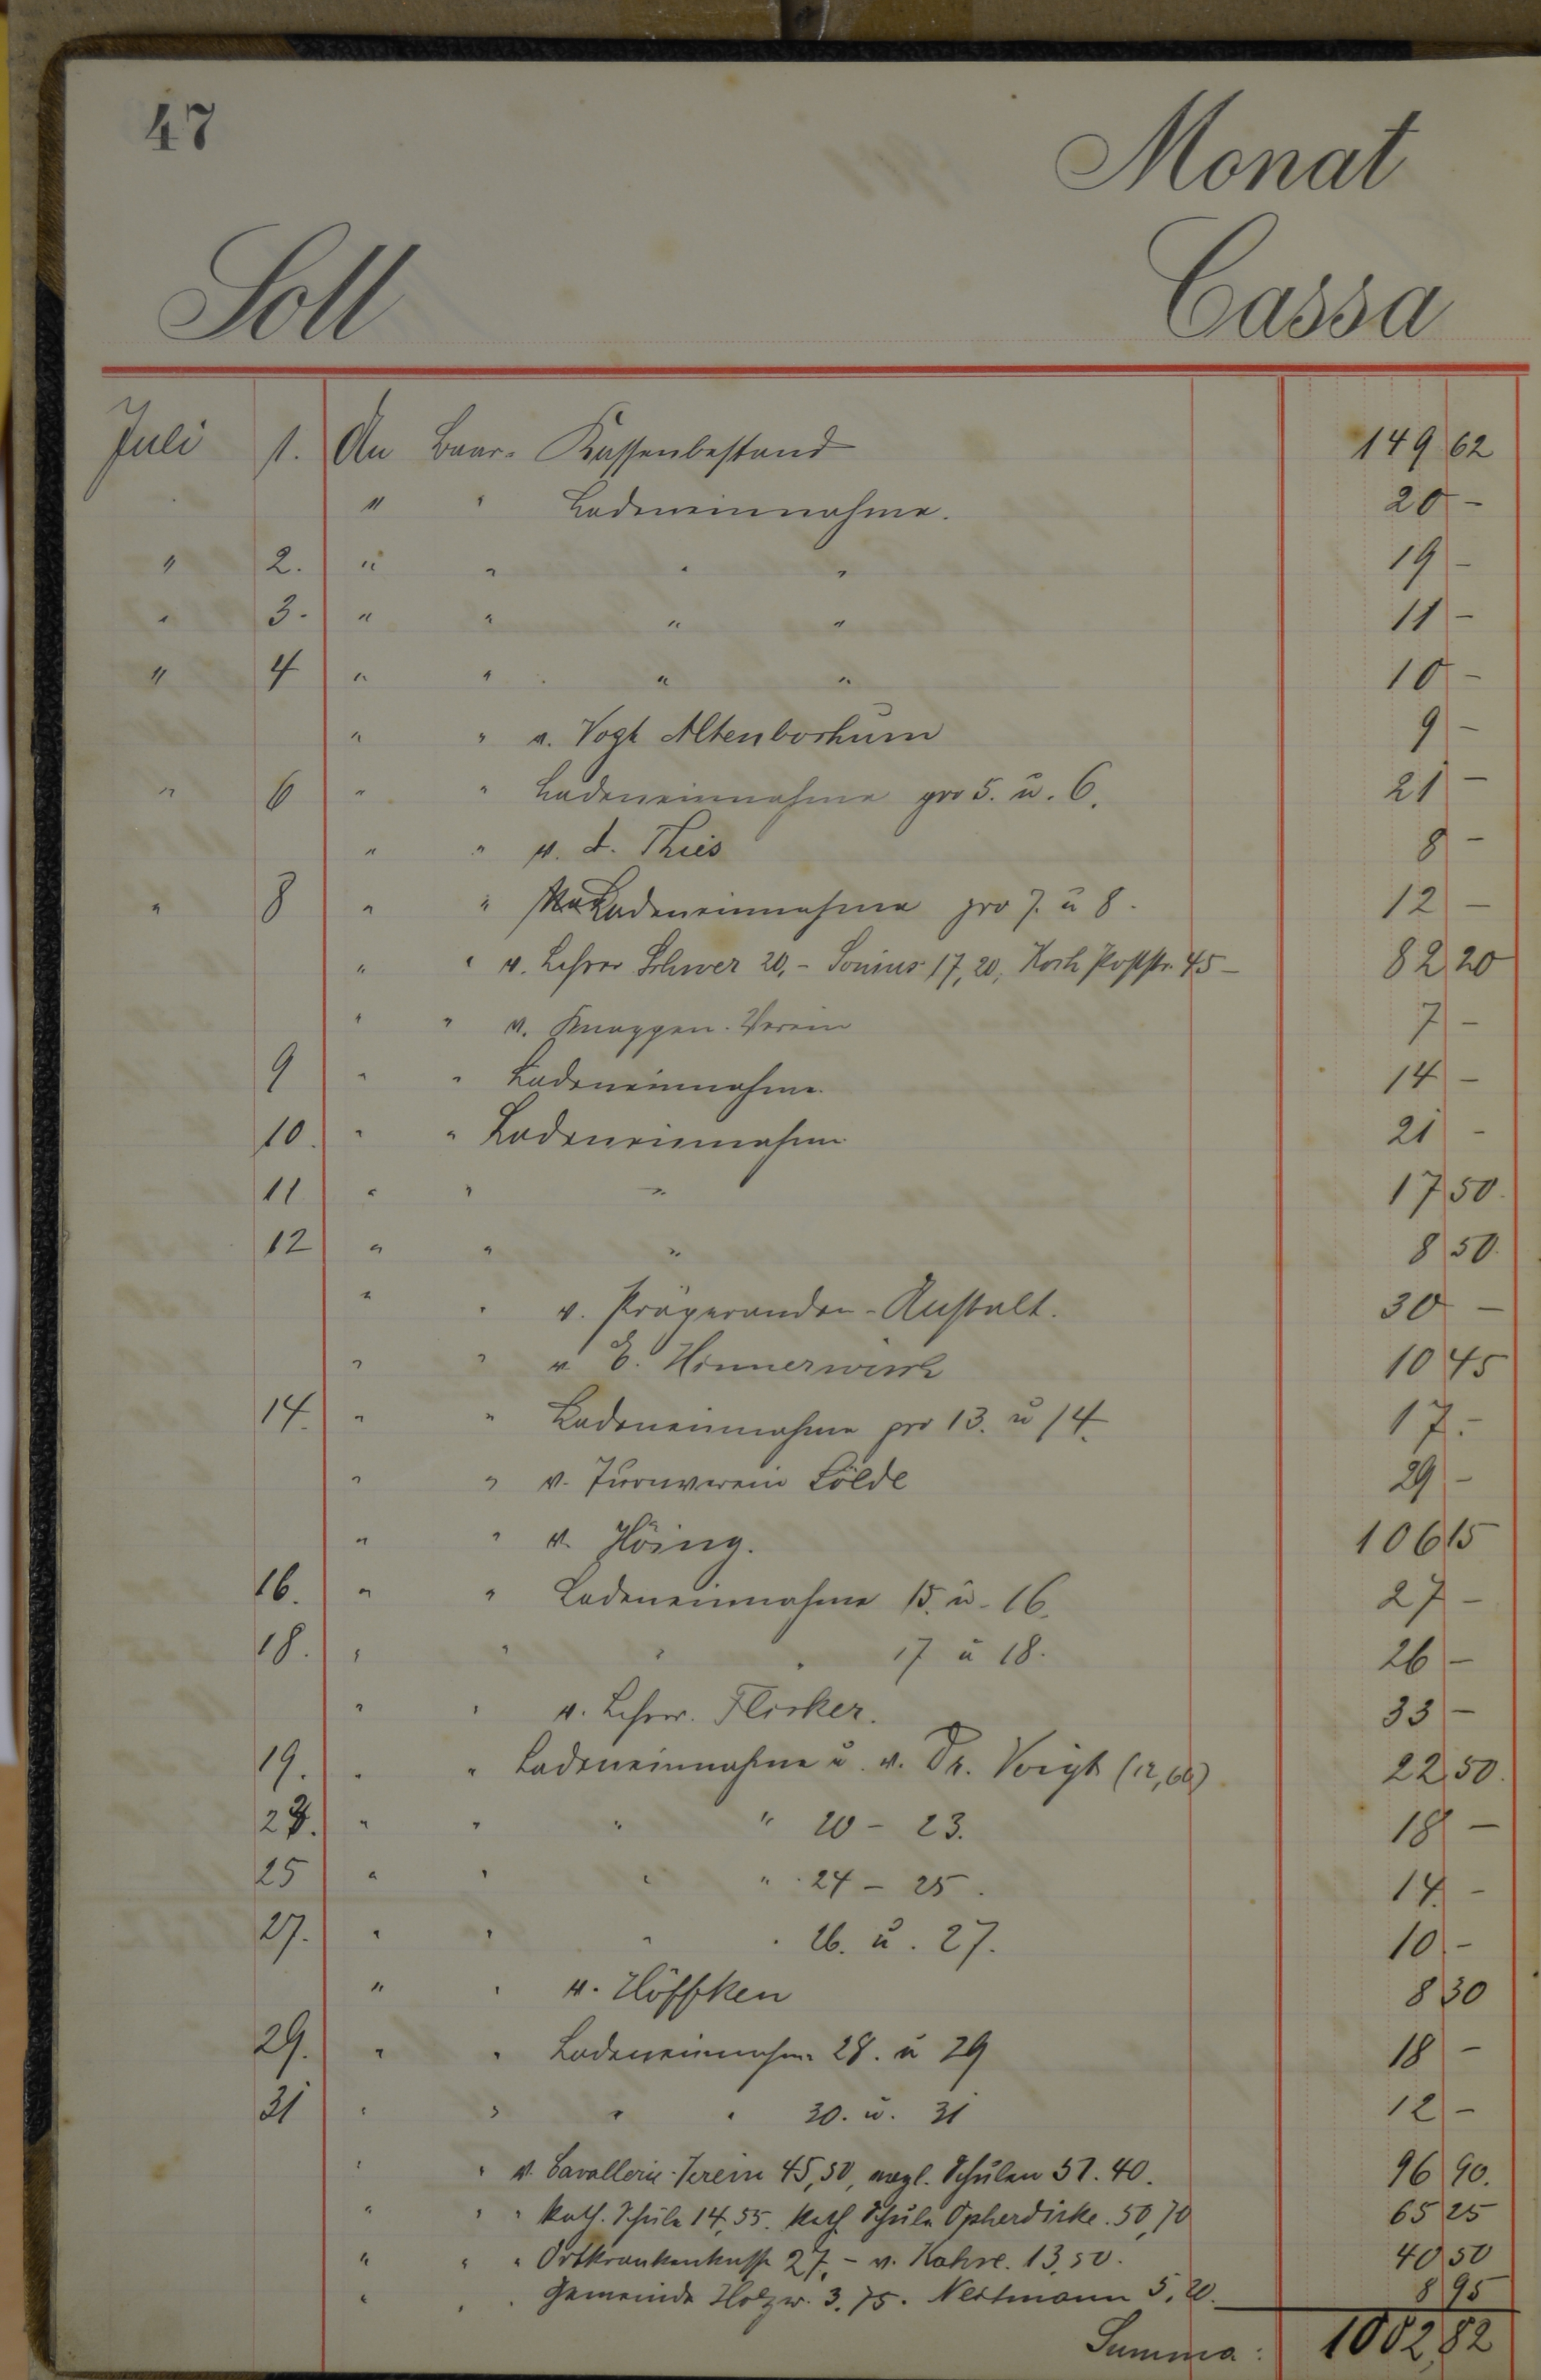 47
Monat
Soll Cassa
Juli 1. An Baar- Kassenbestand 149 62
" " Ladeneinnahme. 20 -
" 2. " " " " 19 -
" 3. " " " " 11 -
" 4 " " " " 10 -
" " v. Vogt Altenborhum 9 -
" 6 " " Ladeneinnahme pro 5. u. 6. 21 -
" " v. d. Thies 8 -
" 8 " " Ladeneinnahme pro 7. u 8. 12 -
" " v. Lehrer Schwer 20,- Sonius 17,20, Koch Poststr. 45- 82 20
" " v. Knappen-Verein 7 -
9 " " Ladeneinnahme 14 -
10. " " Ladeneinnahme 21 -
11 " " " 17 50.
12 " " " 8 50.
" " v. Präparanden-Anstalt. 30 -
" " v E. Hinnerwisch 10 45
14. " " Ladeneinnahme pro 13. u 14. 17.-
" " v. Turnverein Sölde 29 -
" " v. Höing. 106 15
16. " " Ladeneinnahme 15. u. 16. 27 -
18. " " " " 17 u 18. 26 -
" " v. Lehrer. Flisker. 33 -
19. " " Ladeneinnahme u. v. Dr. Voigt 22,50.
23. " " " " 20 - 23. 18 -
25 " " " " 24 - 25. 14 -
27. " " " " 26. u. 27. 10 -
" " v. Höffken 8 30
29. " " Ladeneinnahme 28. u 29 18 -
31 " " " " 30. u. 31 12 -
" " v. Cavallerie-Verein 45,50, evgl. Schulen 51.40. 96 90.
" " " Kath. Schule 14,55. Kath Schule Opherdicke. 50,70 65 25
" " " Ortkrankenkasse 27,- v. Kahre. 13,50. 40 50
" " " Gemeinde Holzw. 3.75. Nestmann 5.20. 8 95
Summa: 1002,82